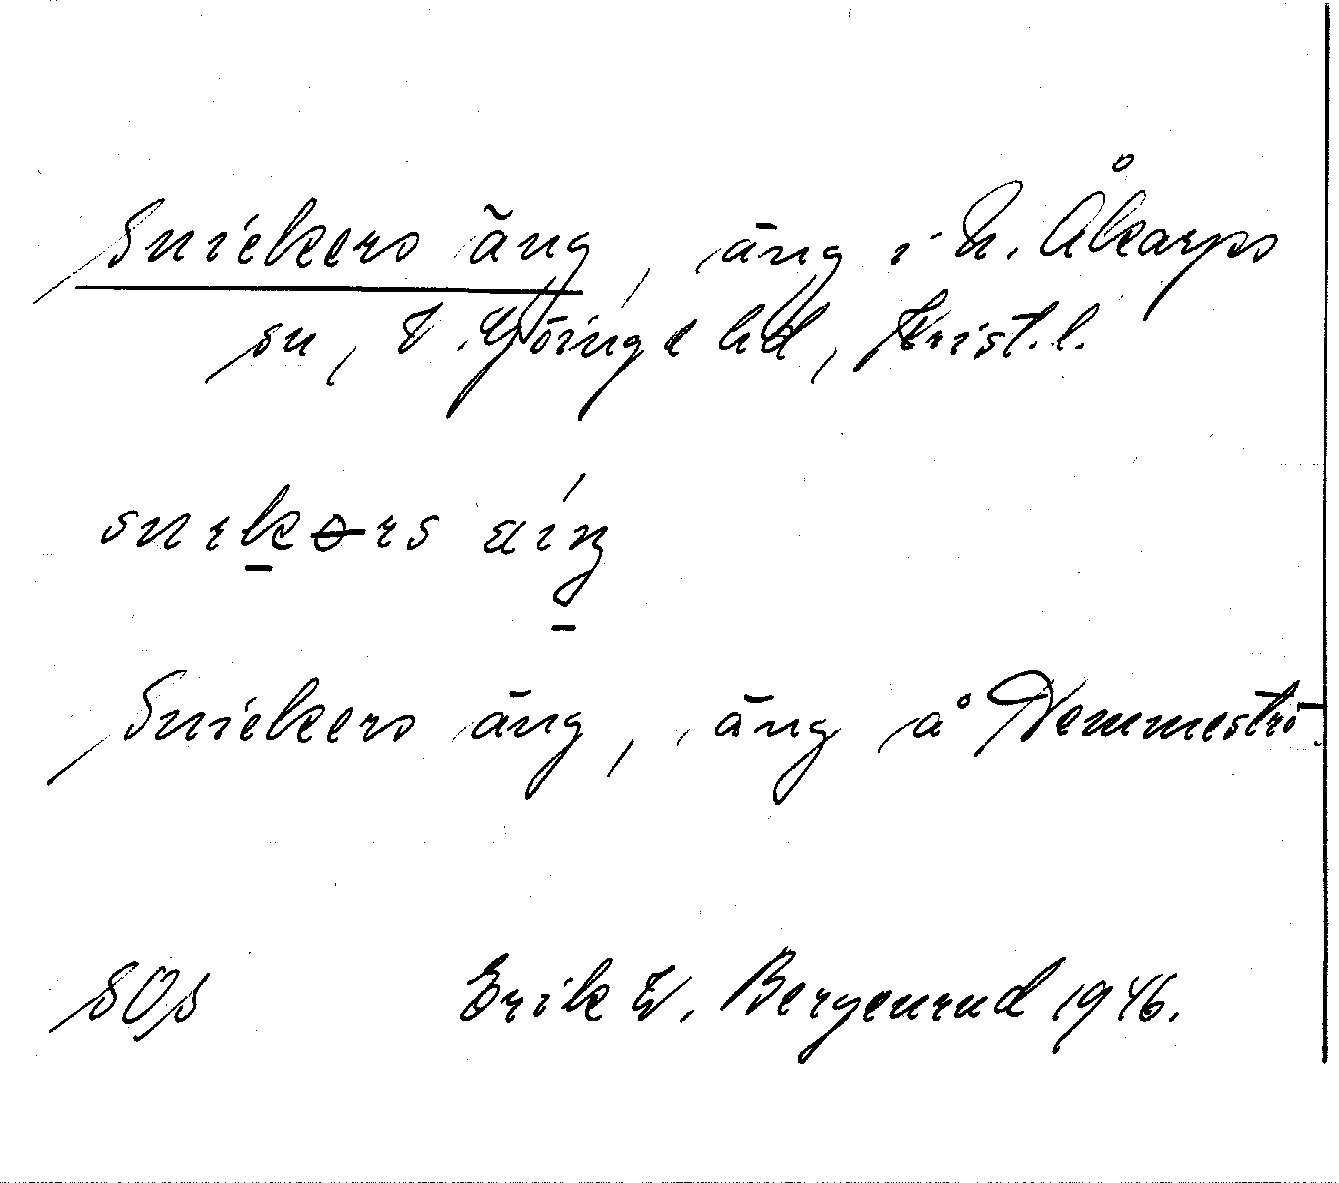 Snickers äng, äng i N. Åkarps
sn, V. Göinge hd, Krist. l.
Snickers äng, äng på Hemmeströ.
SOS Erik W. Bergenrud 1946.